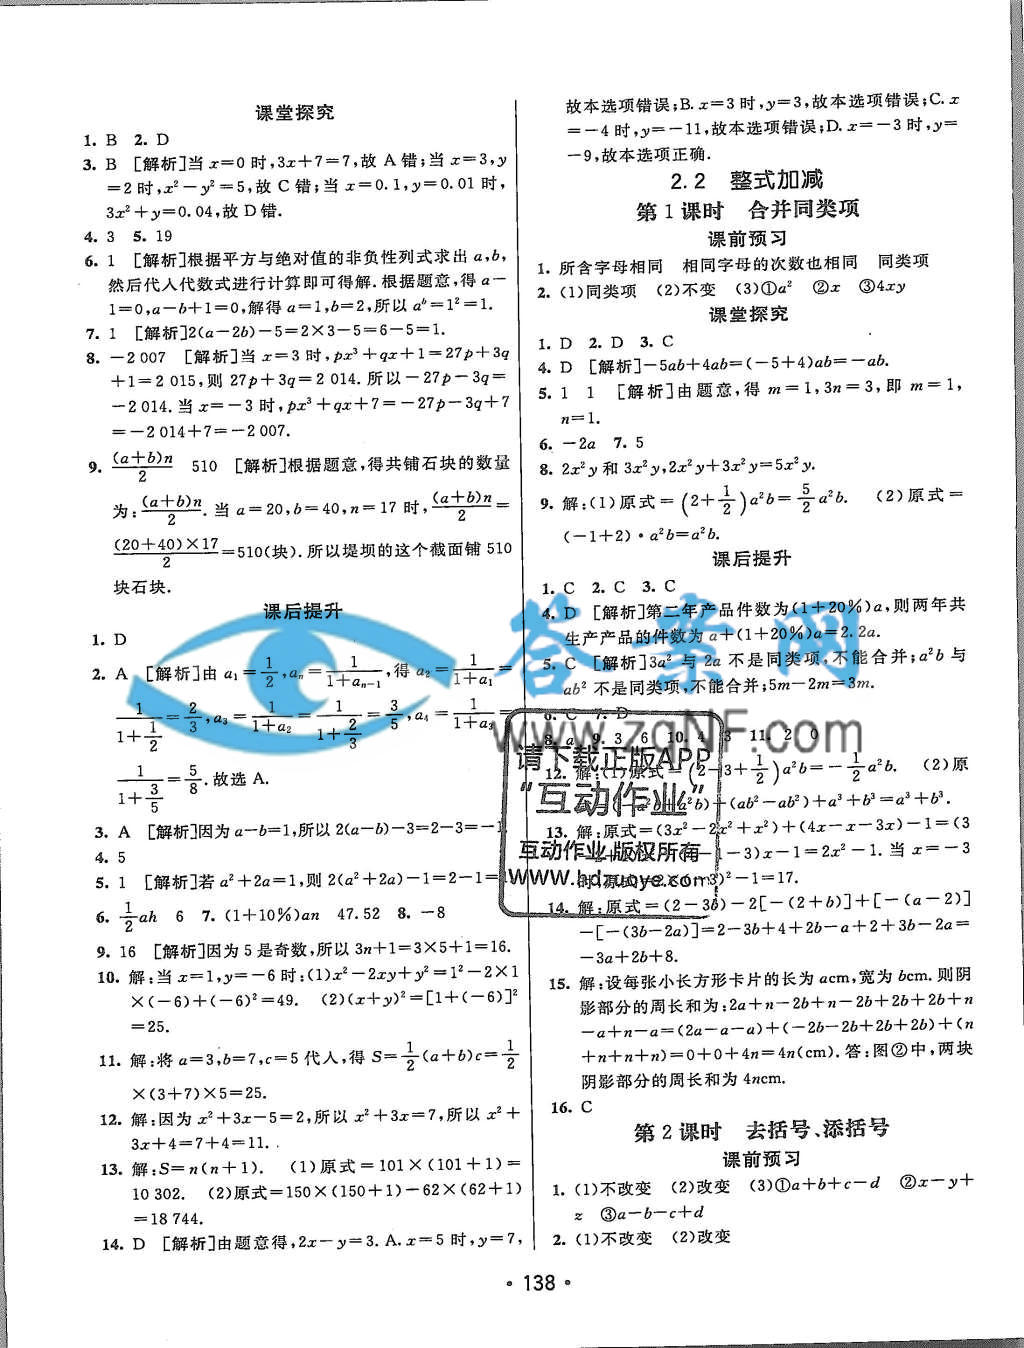 课堂探究
1. B 2. D
3. B [解析]当 x=0 时,3x+7=7,故 A 错;当 x=3,y
=2 时,x²-y²=5,故 C 错;当 x=0.1,y=0.01 时,
3x²+y=0.04,故 D 错.
4. 3 5. 19
6. 1 [解析]根据平方与绝对值的非负性列式求出 a,b,
然后代入代数式进行计算即可得解.根据题意,得 a-
1=0,a-b+1=0,解得 a=1,b=2,所以 aᵇ=1²=1.
7. 1 [解析]2(a-2b)-5=2×3-5=6-5=1.
8. -2 007 [解析]当 x=3 时,px³+qx+1=27p+3q
+1=2 015,则 27p+3q=2 014.所以-27p-3q=
-2 014.当 x=-3 时,px³+qx+7=-27p-3q+7
=-2 014+7=-2 007.
9. (a+b)n/2 510 [解析]根据题意,得共铺石块的数量
为:(a+b)n/2.当 a=20,b=40,n=17 时,(a+b)n/2=
(20+40)×17/2=510(块).所以堤坝的这个截面铺 510
块石块.
课后提升
1. D
2. A [解析]由 a₁=1/2,aₙ=1/(1+aₙ₋₁),得 a₂=1/(1+a₁)=
1/(1+1/2)=2/3,a₃=1/(1+a₂)=1/(1+2/3)=3/5,a₄=1/(1+a₃)=
1/(1+3/5)=5/8.故选 A.
3. A [解析]因为 a-b=1,所以 2(a-b)-3=2-3=-1.
4. 5
5. 1 [解析]若 a²+2a=1,则 2(a²+2a)-1=2-1=1.
6. 1/2ah 6 7. (1+10%)an 47.52 8. -8
9. 16 [解析]因为 5 是奇数,所以 3n+1=3×5+1=16.
10. 解:当 x=1,y=-6 时:(1)x²-2xy+y²=1²-2×1
×(-6)+(-6)²=49. (2)(x+y)²=[1+(-6)]²
=25.
11. 解:将 a=3,b=7,c=5 代入,得 S=1/2(a+b)c=1/2
×(3+7)×5=25.
12. 解:因为 x²+3x-5=2,所以 x²+3x=7,所以 x²+
3x+4=7+4=11.
13. 解:S=n(n+1). (1)原式=101×(101+1)=
10 302. (2)原式=150×(150+1)-62×(62+1)
=18 744.
14. D [解析]由题意得,2x-y=3.A.x=5 时,y=7,
故本选项错误;B.x=3 时,y=3,故本选项错误;C.x
=-4 时,y=-11,故本选项错误;D.x=-3 时,y=
-9,故本选项正确.
2.2 整式加减
第 1 课时 合并同类项
课前预习
1. 所含字母相同 相同字母的次数也相同 同类项
2. (1)同类项 (2)不变 (3)①a² ②x ③4xy
课堂探究
1. D 2. D 3. C
4. D [解析]-5ab+4ab=(-5+4)ab=-ab.
5. 1 1 [解析]由题意,得 m=1,3n=3,即 m=1,
n=1.
6. -2a 7. 5
8. 2x²y 和 3x²y,2x²y+3x²y=5x²y.
9. 解:(1)原式=(2+1/2)a²b=5/2a²b. (2)原式=
(-1+2)·a²b=a²b.
课后提升
1. C 2. C 3. C
4. D [解析]第二年产品件数为(1+20%)a,则两年共
生产产品的件数为 a+(1+20%)a=2.2a.
5. C [解析]3a² 与 2a 不是同类项,不能合并;a²b 与
ab² 不是同类项,不能合并;5m-2m=3m.
6. C 7. D
8. a 9. 3 6 10. 4 3 11. 2 0
12. 解:(1)原式=(2-3+1/2)a²b=-1/2a²b. (2)原
a²b)+(ab²-ab²)+a³+b³=a³+b³.
13. 解:原式=(3x²-2x²+x²)+(4x-x-3x)-1=(3
-1-3)x-1=2x²-1.当 x=-3
时,原式=2×(-3)²-1=17.
14. 解:原式=(2-3b)-2[-(2+b)]+[-(a-2)]
-[-(3b-2a)]=2-3b+4+2b-a+2+3b-2a=
-3a+2b+8.
15. 解:设每张小长方形卡片的长为 acm,宽为 bcm.则阴
影部分的周长和为:2a+n-2b+n-2b+2b+2b+n
-a+n-a=(2a-a-a)+(-2b-2b+2b+2b)+(n
+n+n+n)=0+0+4n=4n(cm).答:图②中,两块
阴影部分的周长和为 4ncm.
16. C
第 2 课时 去括号、添括号
课前预习
1. (1)不改变 (2)改变 (3)①a+b+c-d ②x-y+
z ③a-b-c+d
2. (1)不改变 (2)改变
· 138 ·
答案网
www.zqNF.com
请下载正版APP
“互动作业”
互动作业,版权所有
www.hdzuoye.com